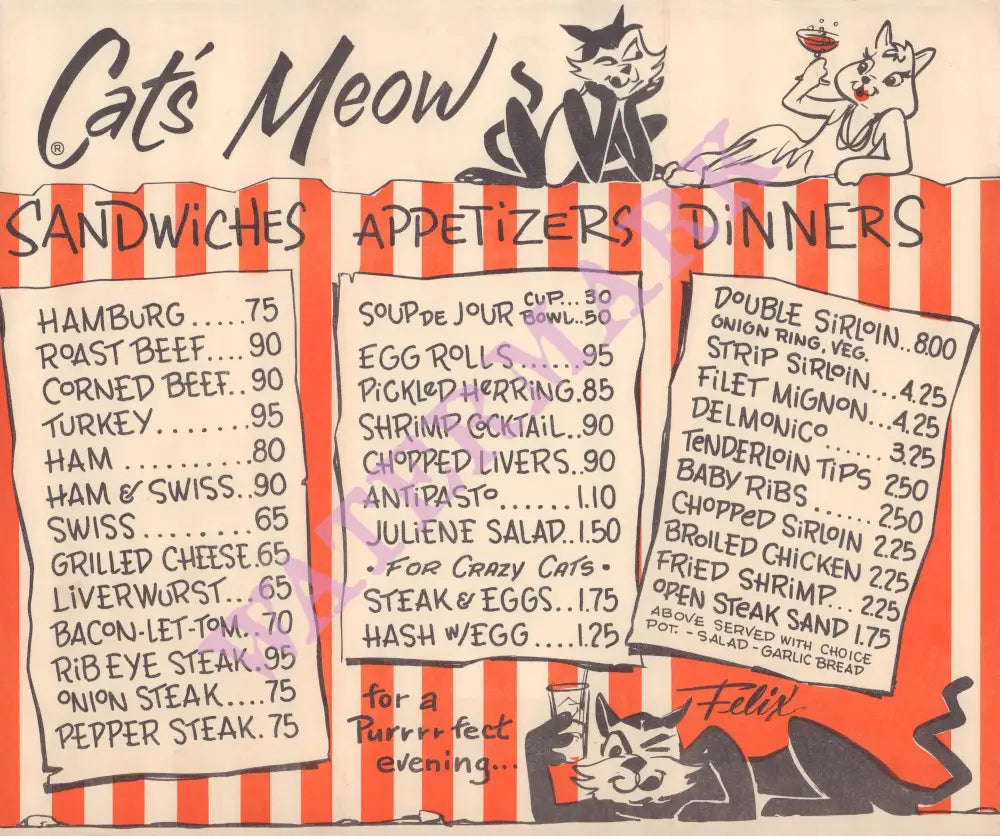 Cat's Meow
®
SANDWICHES
HAMBURG.....75
ROAST BEEF....90
CORNED BEEF..90
TURKEY.......95
HAM ..........80
HAM & SWISS..90
SWISS........65
GRILLED CHEESE.65
LIVERWURST...65
BACON-LET-TOM..70
RIB EYE STEAK.95
ONION STEAK....75
PEPPER STEAK.75
APPETIZERS
SOUP DE JOUR CUP...30
BOWL..50
EGG ROLLS......95
PICKLED HERRING.85
SHRIMP COCKTAIL..90
CHOPPED LIVERS..90
ANTIPASTO......1.10
JULIENE SALAD..1.50
• FOR CRAZY CATS •
STEAK & EGGS..1.75
HASH W/EGG....1.25
for a
Purrrrfect
evening...
DINNERS
DOUBLE SIRLOIN..8.00
ONION RING, VEG.
STRIP SIRLOIN...4.25
FILET MIGNON...4.25
DELMONICO...... 3.25
TENDERLOIN TIPS 2.50
BABY RIBS...... 2.50
CHOPPED SIRLOIN 2.25
BROILED CHICKEN 2.25
FRIED SHRIMP... 2.25
OPEN STEAK SAND 1.75
ABOVE SERVED WITH CHOICE
POT. - SALAD - GARLIC BREAD
Felix
WATERMARK